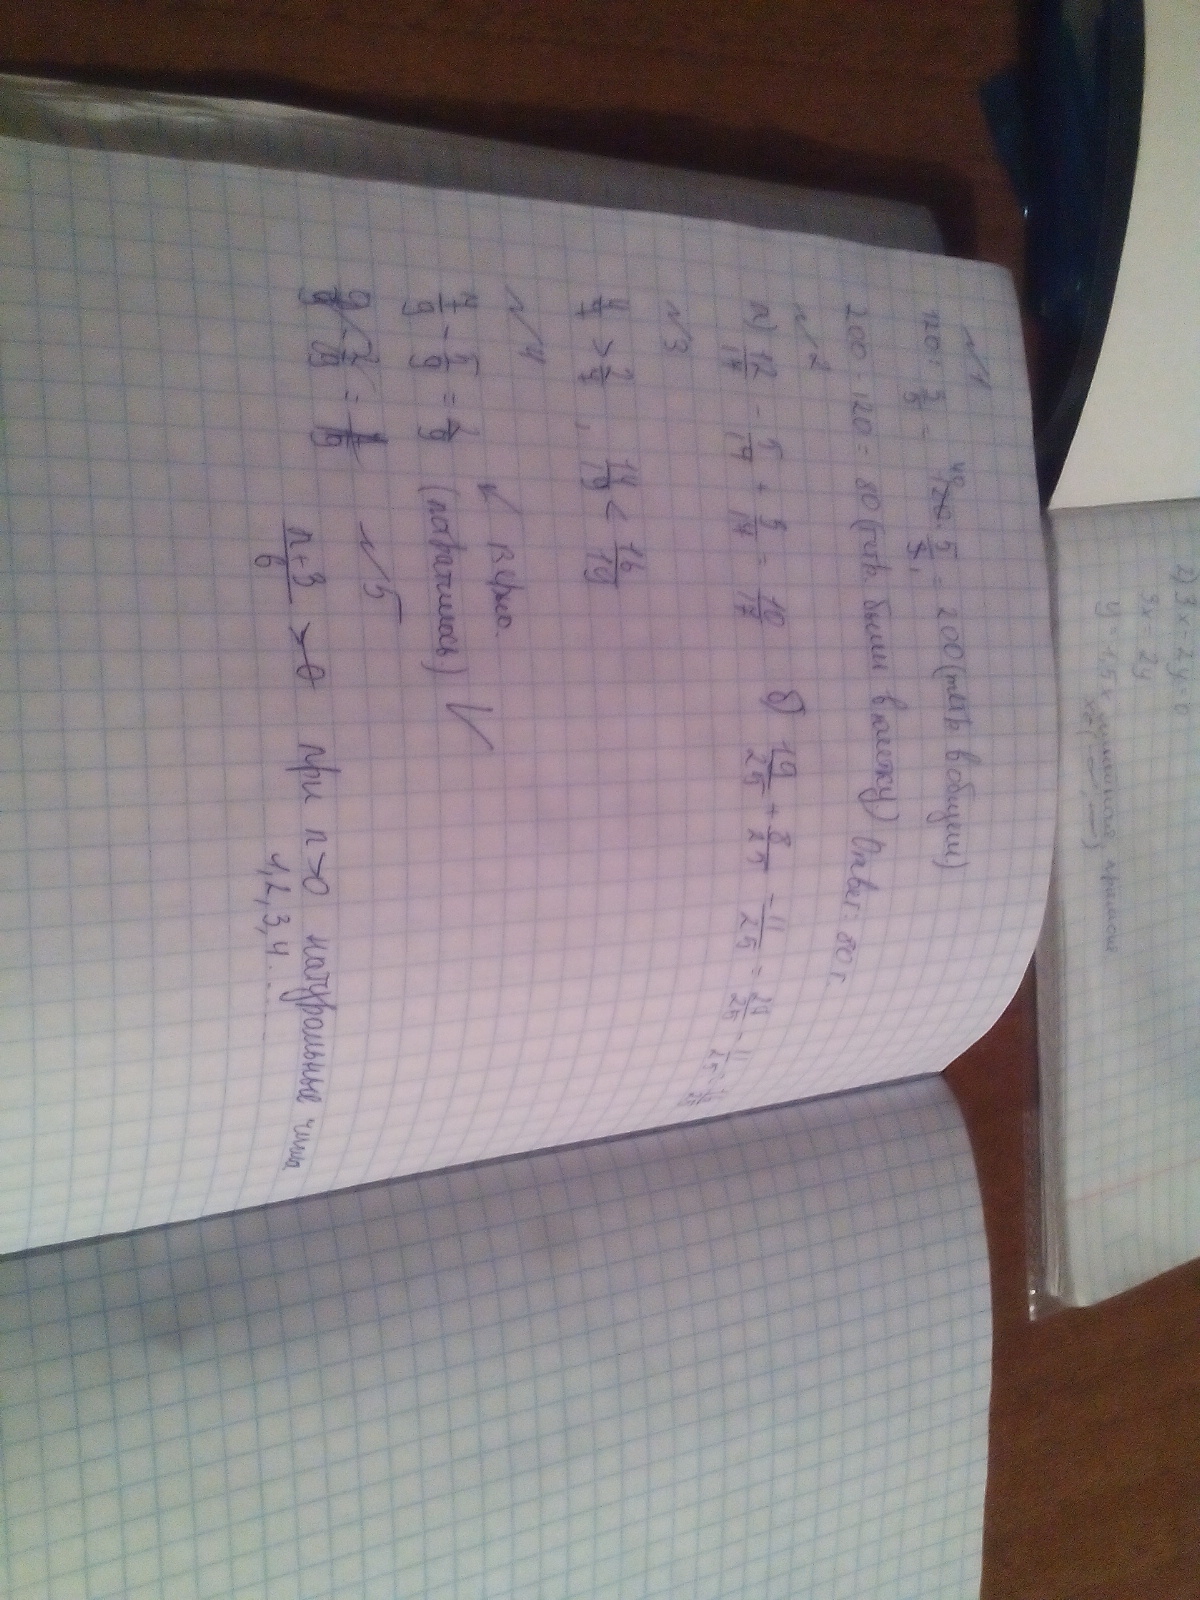 №1
120 : 3/5 = 120 · 5/3 = 200 (тетр в общем)
200 - 120 = 80 (тетр. были в клетку) Ответ: 80 т.
№2
а) 12/17 - 5/17 + 3/17 = 10/17 б) 19/25 + 8/25 - 11/25 = 27/25 - 11/25 = 16/25
№3
4/7 > 2/7 , 14/19 < 16/19
№4
✓ верно.
7/9 - 5/9 = 2/9 (потратилось) ✓
№5
n+3/6 > 0 при n > 0 натуральные числа
1, 2, 3, 4 ......
2) 3x - 2y = 0
3x 2y
y = 1,5x